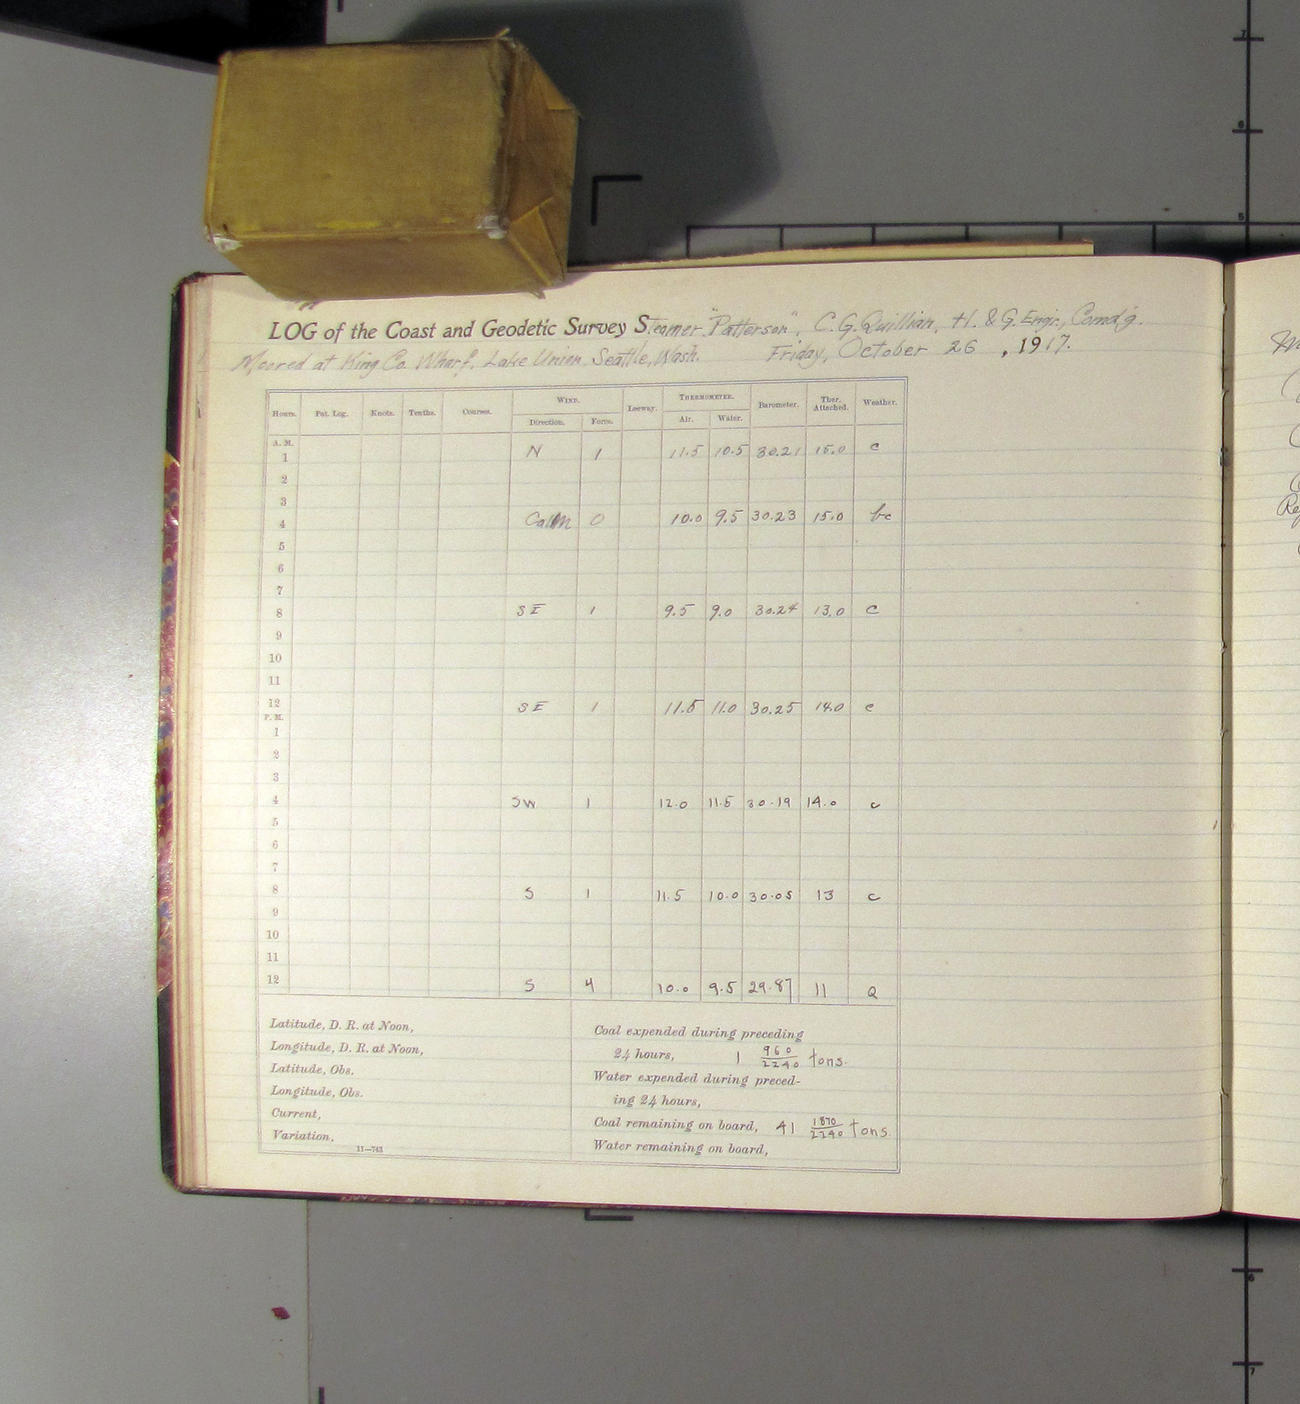 LOG of the Coast and Geodetic Survey Steamer "Patterson", C.G. Quillian, H. & G. Engr., Comd'g.
Moored at King Co. Wharf, Lake Union, Seattle, Wash. Friday, October 26, 1917.
Hours. Pat. Log. Knots. Tenths. Courses. WIND. Leeway. THERMOMETER. Barometer. Ther. Attached. Weather.
Direction. Force. Air. Water.
A. M.
1 N 1 11.5 10.5 30.21 15.0 c
2
3
4 Calm 0 10.0 9.5 30.23 15.0 bc
5
6
7
8 SE 1 9.5 9.0 30.24 13.0 c
9
10
11
12 SE 1 11.5 11.0 30.25 14.0 c
P. M.
1
2
3
4 SW 1 12.0 11.5 30.19 14.0 c
5
6
7
8 S 1 11.5 10.0 30.05 13 c
9
10
11
12 S 4 10.0 9.5 29.87 11 Q
Latitude, D. R. at Noon,
Longitude, D. R. at Noon,
Latitude, Obs.
Longitude, Obs.
Current,
Variation,
11—743
Coal expended during preceding
24 hours, 1 960/2240 tons.
Water expended during preced-
ing 24 hours,
Coal remaining on board, 41 1870/2240 tons.
Water remaining on board,